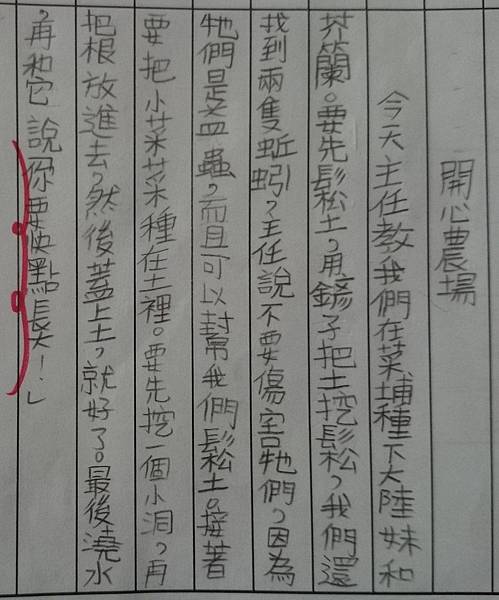 開心農場
今天主任教我們在菜埔種下大陸妹和
芥蘭。要先鬆土，用鏟子把土挖鬆，我們還
找到兩隻蚯蚓，主任說不要傷害牠們，因為
牠們是益蟲，而且可以幫我們鬆土。接著
要把小菜菜種在土裡。要先挖一個小洞，再
把根放進去，然後蓋上土，就好了。最後澆水
，再和它說你要快點長大！」